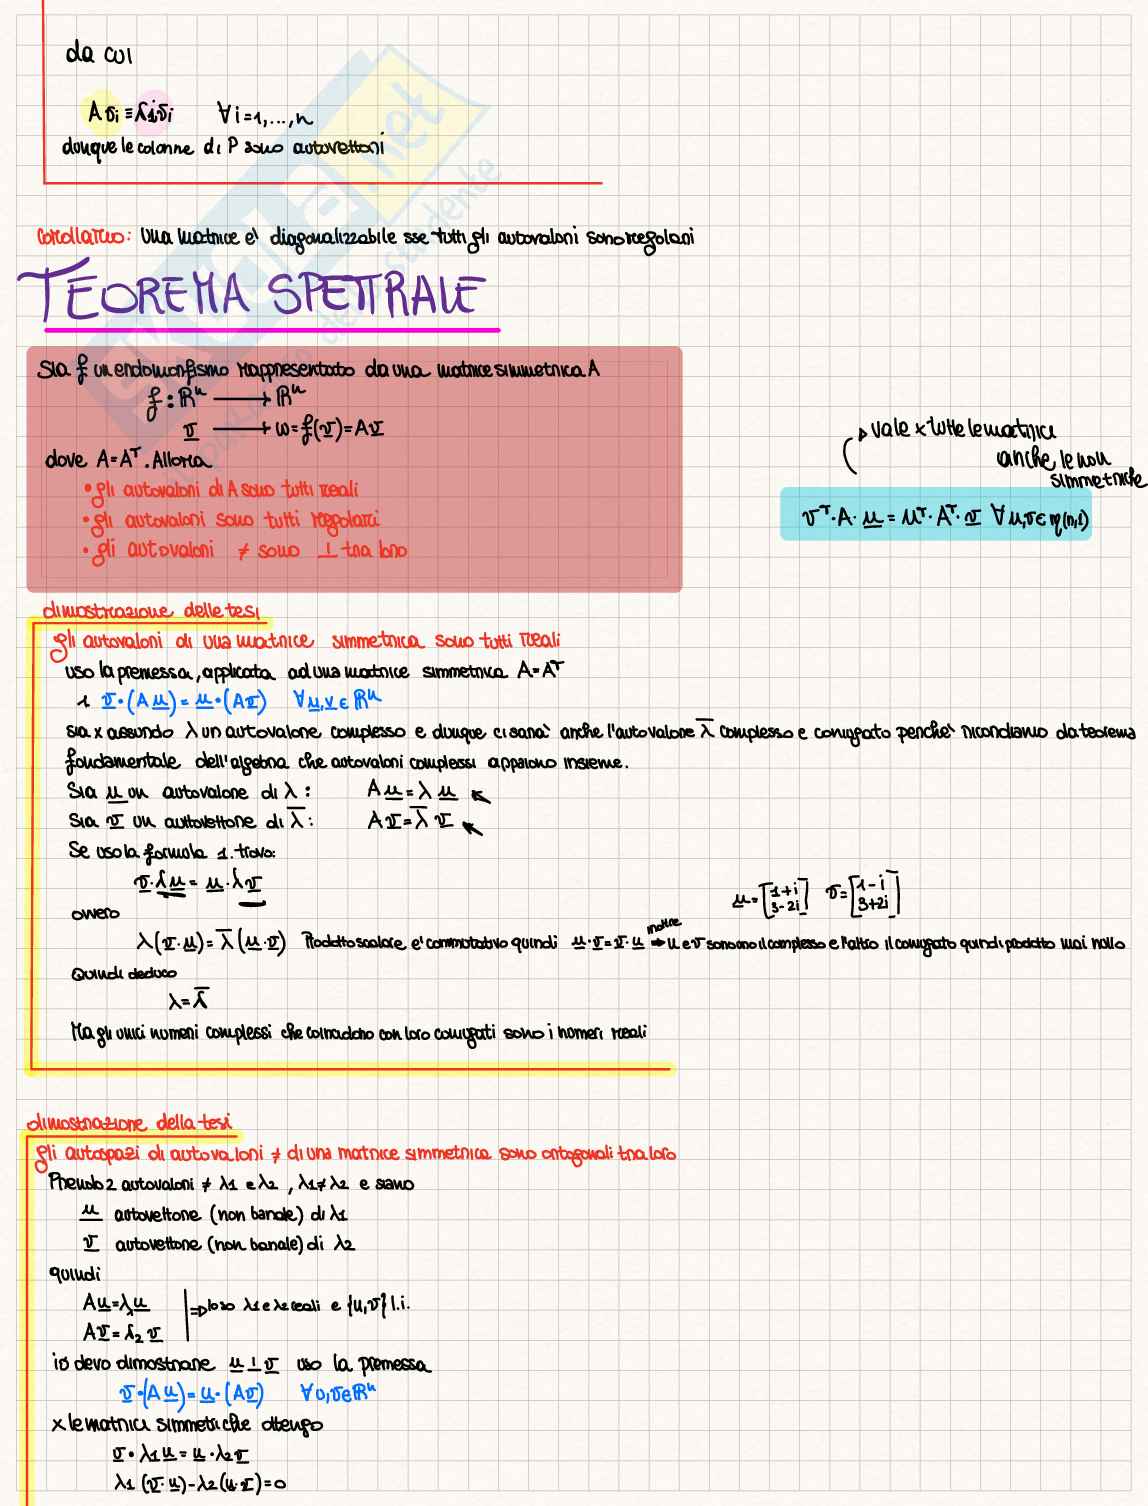 da cui
A vi = λi vi ∀ i=1,...,n
dunque le colonne di P sono autovettori
corollario: una matrice e' diagonalizzabile sse tutti gli autovalori sono regolari
TEOREMA SPETTRALE
Sia f un endomorfismo rappresentato da una matrice simmetrica A
f : ℝⁿ ⟶ ℝⁿ
v ⟶ w = f(v) = Av
dove A=Aᵀ. Allora
• gli autovalori di A sono tutti reali
• gli autovalori sono tutti regolari
• gli autovalori ≠ sono ⊥ tra loro
vale x tutte le matrici
anche le non
simmetriche
vᵀ·A·u = uᵀ·Aᵀ·v ∀ u,v ∈ M(n,1)
dimostrazione delle tesi
gli autovalori di una matrice simmetrica sono tutti reali
uso la premessa, applicata ad una matrice simmetrica A=Aᵀ
1 v·(Au) = u·(Av) ∀ u,v ∈ ℝⁿ
sia x assurdo λ un autovalore complesso e dunque ci sara' anche l'autovalore λ̅ complesso e coniugato perche' ricordiamo da teorema
fondamentale dell'algebra che autovalori complessi appaiono insieme.
Sia u un autovalore di λ: Au = λu
Sia v un autovettore di λ̅: Av = λ̅v
Se uso la formula 1. trovo:
v·λu = u·λv
ovvero
u = [1+i 3-2i] v = [1-i 3+2i]
λ(v·u) = λ̅(u·v) Prodotto scalare e' commutativo quindi u·v = v·u inoltre ⇒ u e v sono uno il complesso e l'altro il coniugato quindi prodotto mai nullo
Quindi deduco
λ = λ̅
Ma gli unici numeri complessi che coincidono con loro coniugati sono i numeri reali
dimostrazione della tesi
gli autospazi di autovalori ≠ di una matrice simmetrica sono ortogonali tra loro
Prendo 2 autovalori ≠ λ1 e λ2, λ1≠λ2 e siano
u autovettore (non banale) di λ1
v autovettore (non banale) di λ2
quindi
Au = λ1u ⇒ λ1 e λ2 reali e {u,v} l.i.
Av = λ2 v
io devo dimostrare u ⊥ v uso la premessa
v·(Au) = u·(Av) ∀ u,v ∈ ℝⁿ
x le matrici simmetriche ottengo
v·λ1u = u·λ2v
λ1(v·u)-λ2(u·v)=0